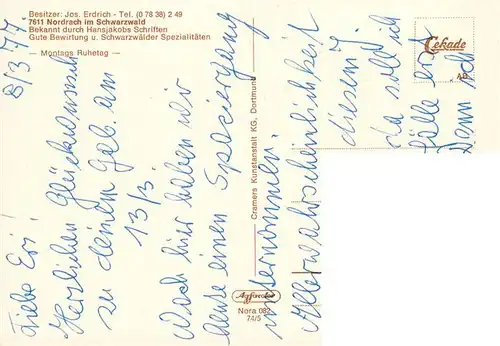 Besitzer: Jos. Erdrich - Tel. (0 78 38) 2 49
7611 Nordrach im Schwarzwald
Bekannt durch Hansjakobs Schriften
Gute Bewirtung u. Schwarzwälder Spezialitäten
— Montags Ruhetag —
8/3 77.
Liebe Evi!
Herzlichen Glückwunsch
zu deinem Geb. am
13/3.
Nach hier haben wir
heute einen Spaziergang
unternommen.
Allerwahrscheinlichkeit
diesem
da soll ich
fälle erst
Denn ich
Cramers Kunstanstalt KG, Dortmund
Cekade
AD
Nora 082
74/5